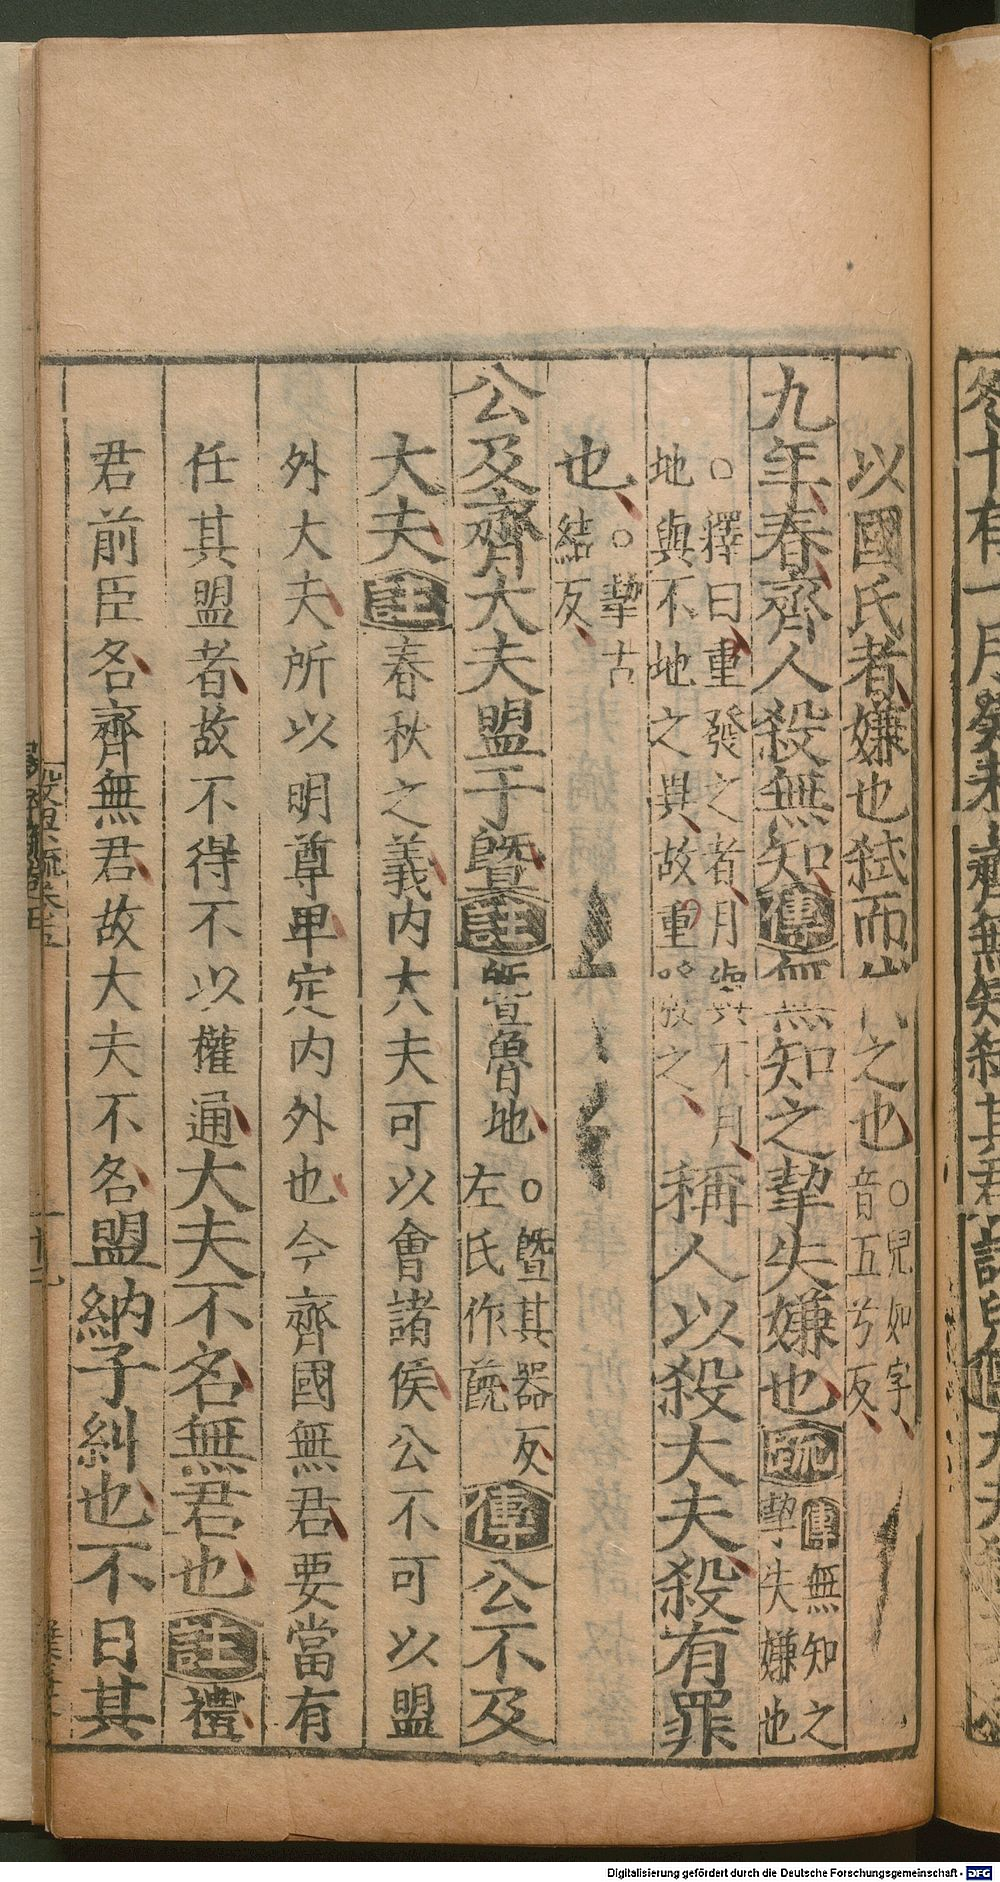 以國氏者嫌也弑而 之也○兒如字音五兮反
九年春齊人殺無知傳無知之挈失嫌也疏傳無知之挈失嫌也
○釋曰重發之者月與不月地與不地之異故重發之稱人以殺大夫殺有罪
也○挈古結反
公及齊大夫盟于暨註暨魯地○暨其器反左氏作蔇傳公不及
大夫註春秋之義內大夫可以會諸侯公不可以盟
外大夫所以明尊卑定內外也今齊國無君要當有
任其盟者故不得不以權通大夫不名無君也註禮
君前臣名齊無君故大夫不名盟納子糾也不日其
Digitalisierung gefördert durch die Deutsche Forschungsgemeinschaft - DFG